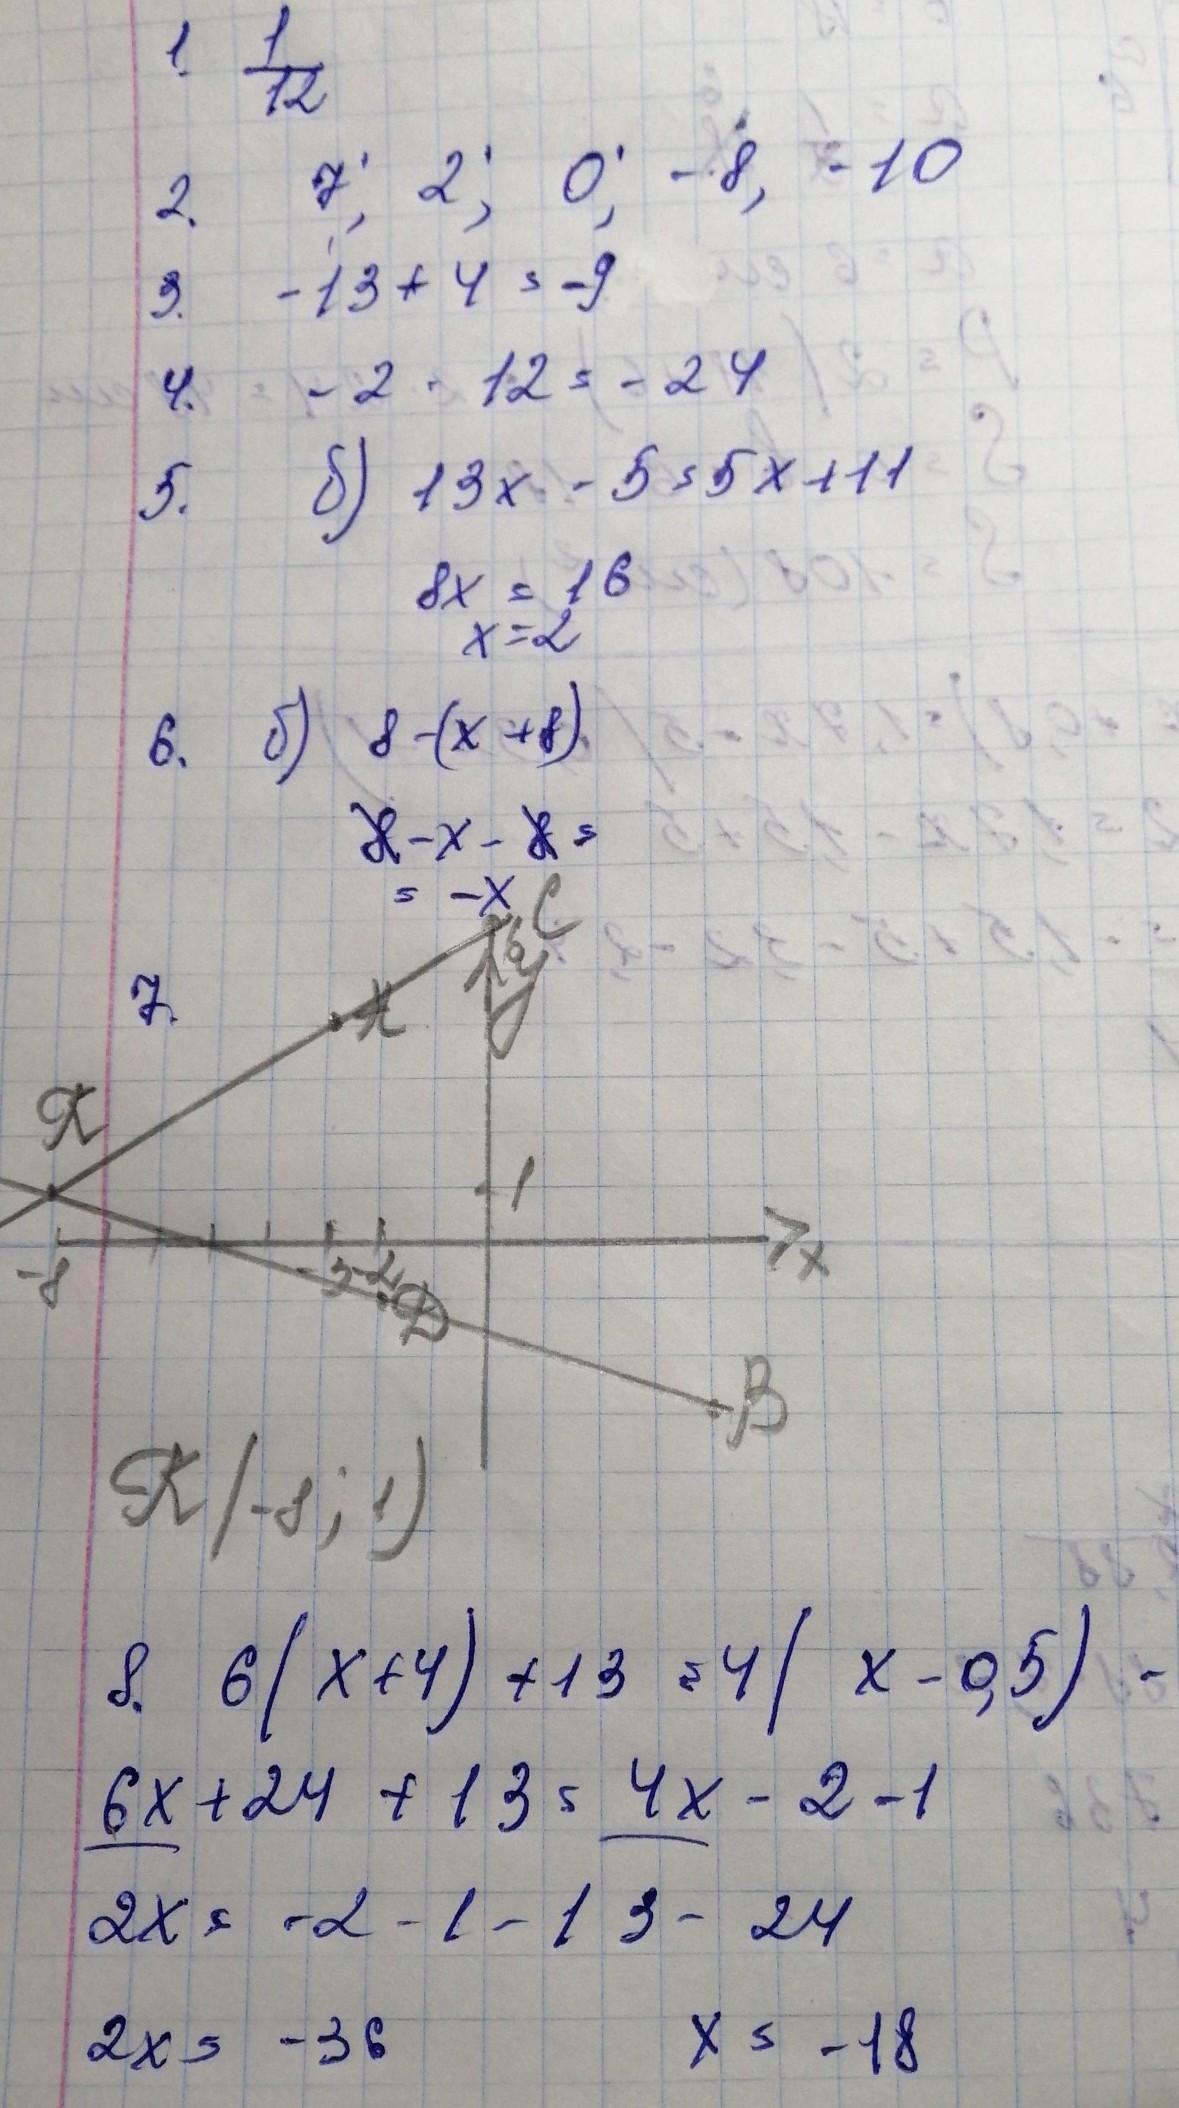 1. 1/12
2. 7; 2; 0; -8, -10
3. -13 + 4 = -9
4. -2 · 12 = -24
5. б) 13x - 5 = 5x + 11
8x = 16
x = 2
6. б) 8 - (x + 8)
8 - x - 8 =
= -x
C
6
y
7.
A
K
1
-8
-3
-2
x
D
B
K(-8; 1)
8. 6(x+4) + 13 = 4(x - 0,5) -
6x + 24 + 13 = 4x - 2 - 1
2x = -2 - 1 - 13 - 24
2x = -36 x = -18